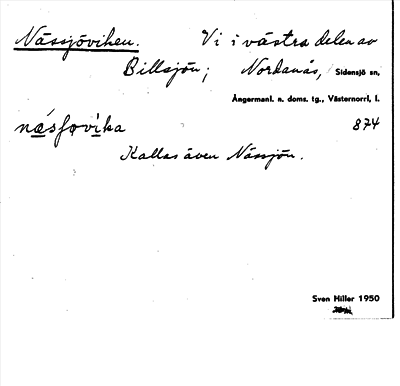 Nässjöviken. Vi i västra delen av
Billsjön; Nordanås, Sidensjö sn,
Ångermanl. n. doms. tg., Västernorrl, l.
874
Kallas även Nässjön.
Sven Hiller 1950